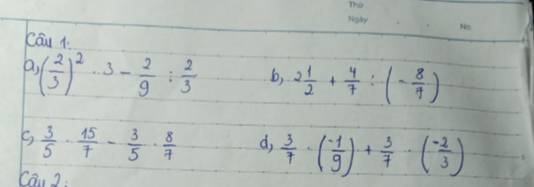 Thứ
Ngày
No
Câu 1:
a, (2/3)² · 3 - 2/9 : 2/3
b, 2 1/2 + 4/7 : (- 8/7)
c, 3/5 · 15/7 - 3/5 · 8/7
d, 3/7 · (-1/9) + 3/7 · (-2/3)
Câu 2: